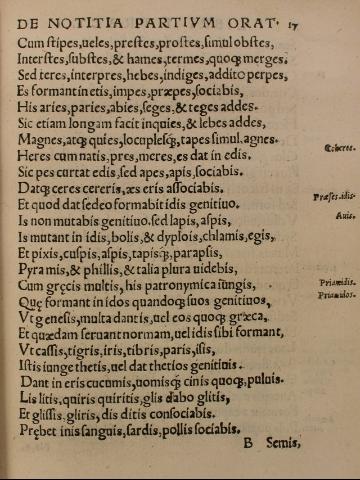 DE NOTITIA PARTIVM ORAT. 17
Cum stipes, ueles, prestes, prostes, simul obstes,
Interstes, substes, & hames, termes, quoq; merges.
Sed teres, interpres, hebes, indiges, addito perpes,
Es formant in etis, impes, præpes, sociabis,
His aries, paries, abies, seges, & teges addes.
Sic etiam longam facit inquies, & lebes addes,
Magnes, atq; quies, locuplesq;, tapes simul. agnes.
Heres cum natis, pres, meres, es dat in edis.
Ccheres.
Sic pes curtat edis, sed apes, apis, sociabis.
Datq; ceres cereris, æs eris associabis.
Et quod dat sedeo formabit idis genitiuo.
Præses.idis.
Is non mutabis genitiuo. sed lapis, aspis,
Auis.
Is mutant in idis, bolis, & dyplois, chlamis, egis,
Et pixis, cuspis, aspis, tapisq;, parapsis,
Pyramis, & phillis, & talia plura uidebis,
Cum gręcis multis, his patronymica iungis,
Priamidis.
Quę formant in idos quandoq; suos genitiuos,
Priamidos.
Vt genesis, multa dant is, uel eos quoq; græca.
Et quædam seruant normam, uel idis sibi formant,
Vt cassis, tigris, iris, tibris, paris, isis,
Istis iunge thetis, uel dat thetios genitiuis.
Dant in eris cucumis, uomisq; cinis quoq;, puluis.
Lis litis, quiris quiritis, glis d'abo glitis,
Et glissis, gliris, dis ditis consociabis.
Prębet inis sanguis, sardis, pollis sociabis.
B Semis,